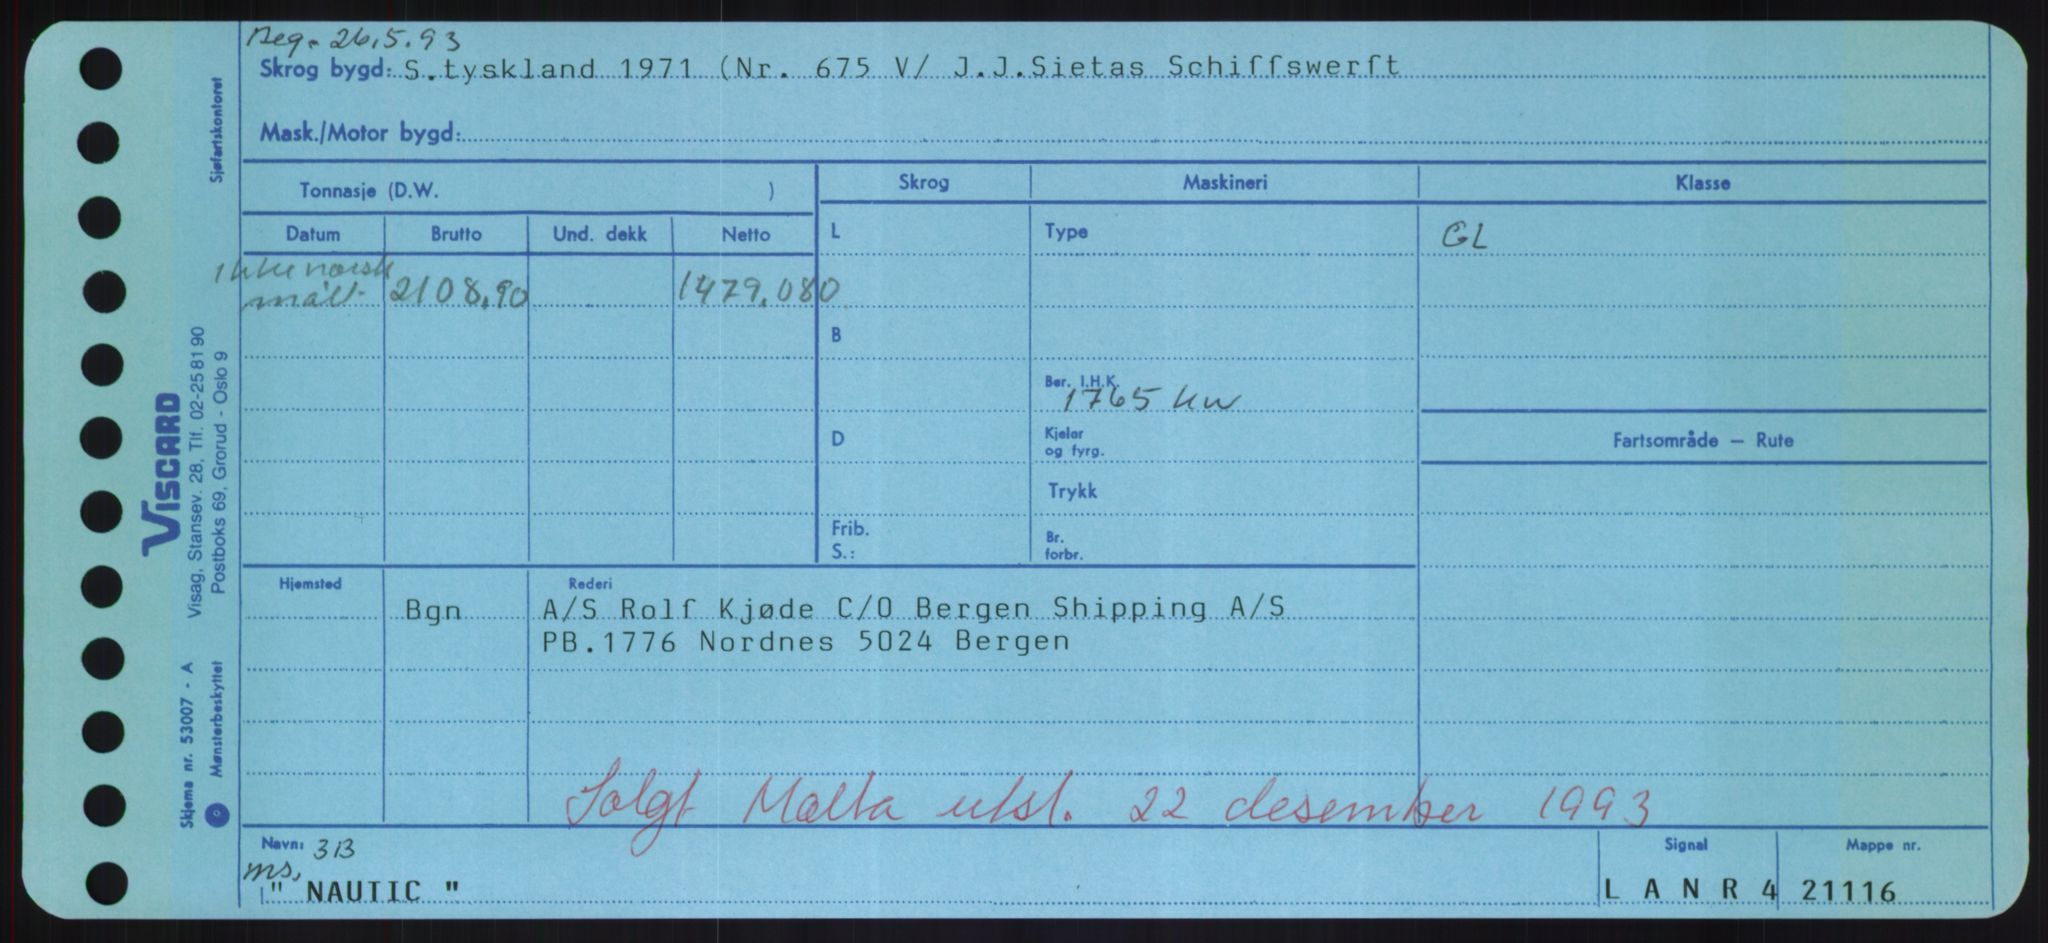 Reg. 26.5.93
Skrog bygd: S.tyskland 1971 (Nr. 675 V/ J.J.Sietas Schiffswerft
Mask./Motor bygd:
Tonnasje (D.W. )
Skrog Maskineri Klasse
Datum Brutto Und. dekk Netto
L Type GL
Ikke norsk
målt 2108,90 1479,080
B
Ber. I.H.K.
1765 kw
D Kjeler
og fyrg.
Fartsområde — Rute
Trykk
Frib.
S.:
Br.
forbr.
Hjemsted Rederi
Bgn A/S Rolf Kjøde C/O Bergen Shipping A/S
PB.1776 Nordnes 5024 Bergen
Solgt Malta utsl. 22 desember 1993
Navn: 313 Signal Mappe nr.
ms.
" NAUTIC " L A N R 4 21116
Sjøfartskontoret
VISCARD
Visag, Stansev. 28, Tlf. 02-258190
Postboks 69, Grorud - Oslo 9
Skjema nr. 53007 - A
Mønsterbeskyttet